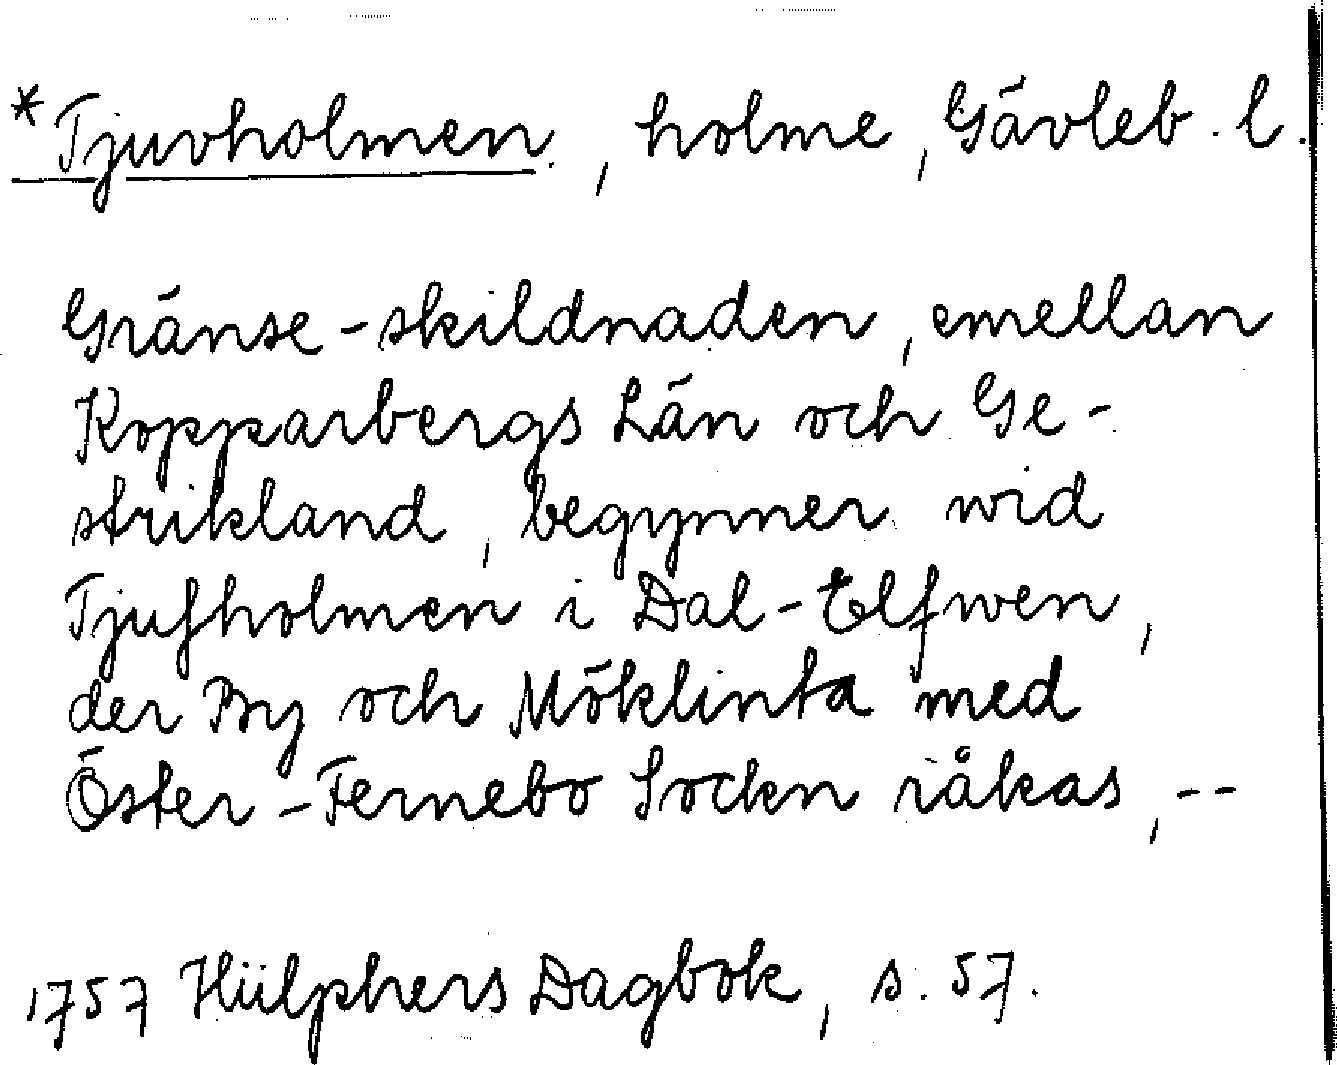 *Tjuvholmen, holme, Gävleb. l.
Gränse-skildnaden, emellan
Kopparbergs Län och Ge-
strikland, begynner wid
Tjufholmen i Dal-Elfwen,
der By och Möklinta med
Öster-Fernebo Sockn råkas, --
1757 Hülphers Dagbok, s. 57.